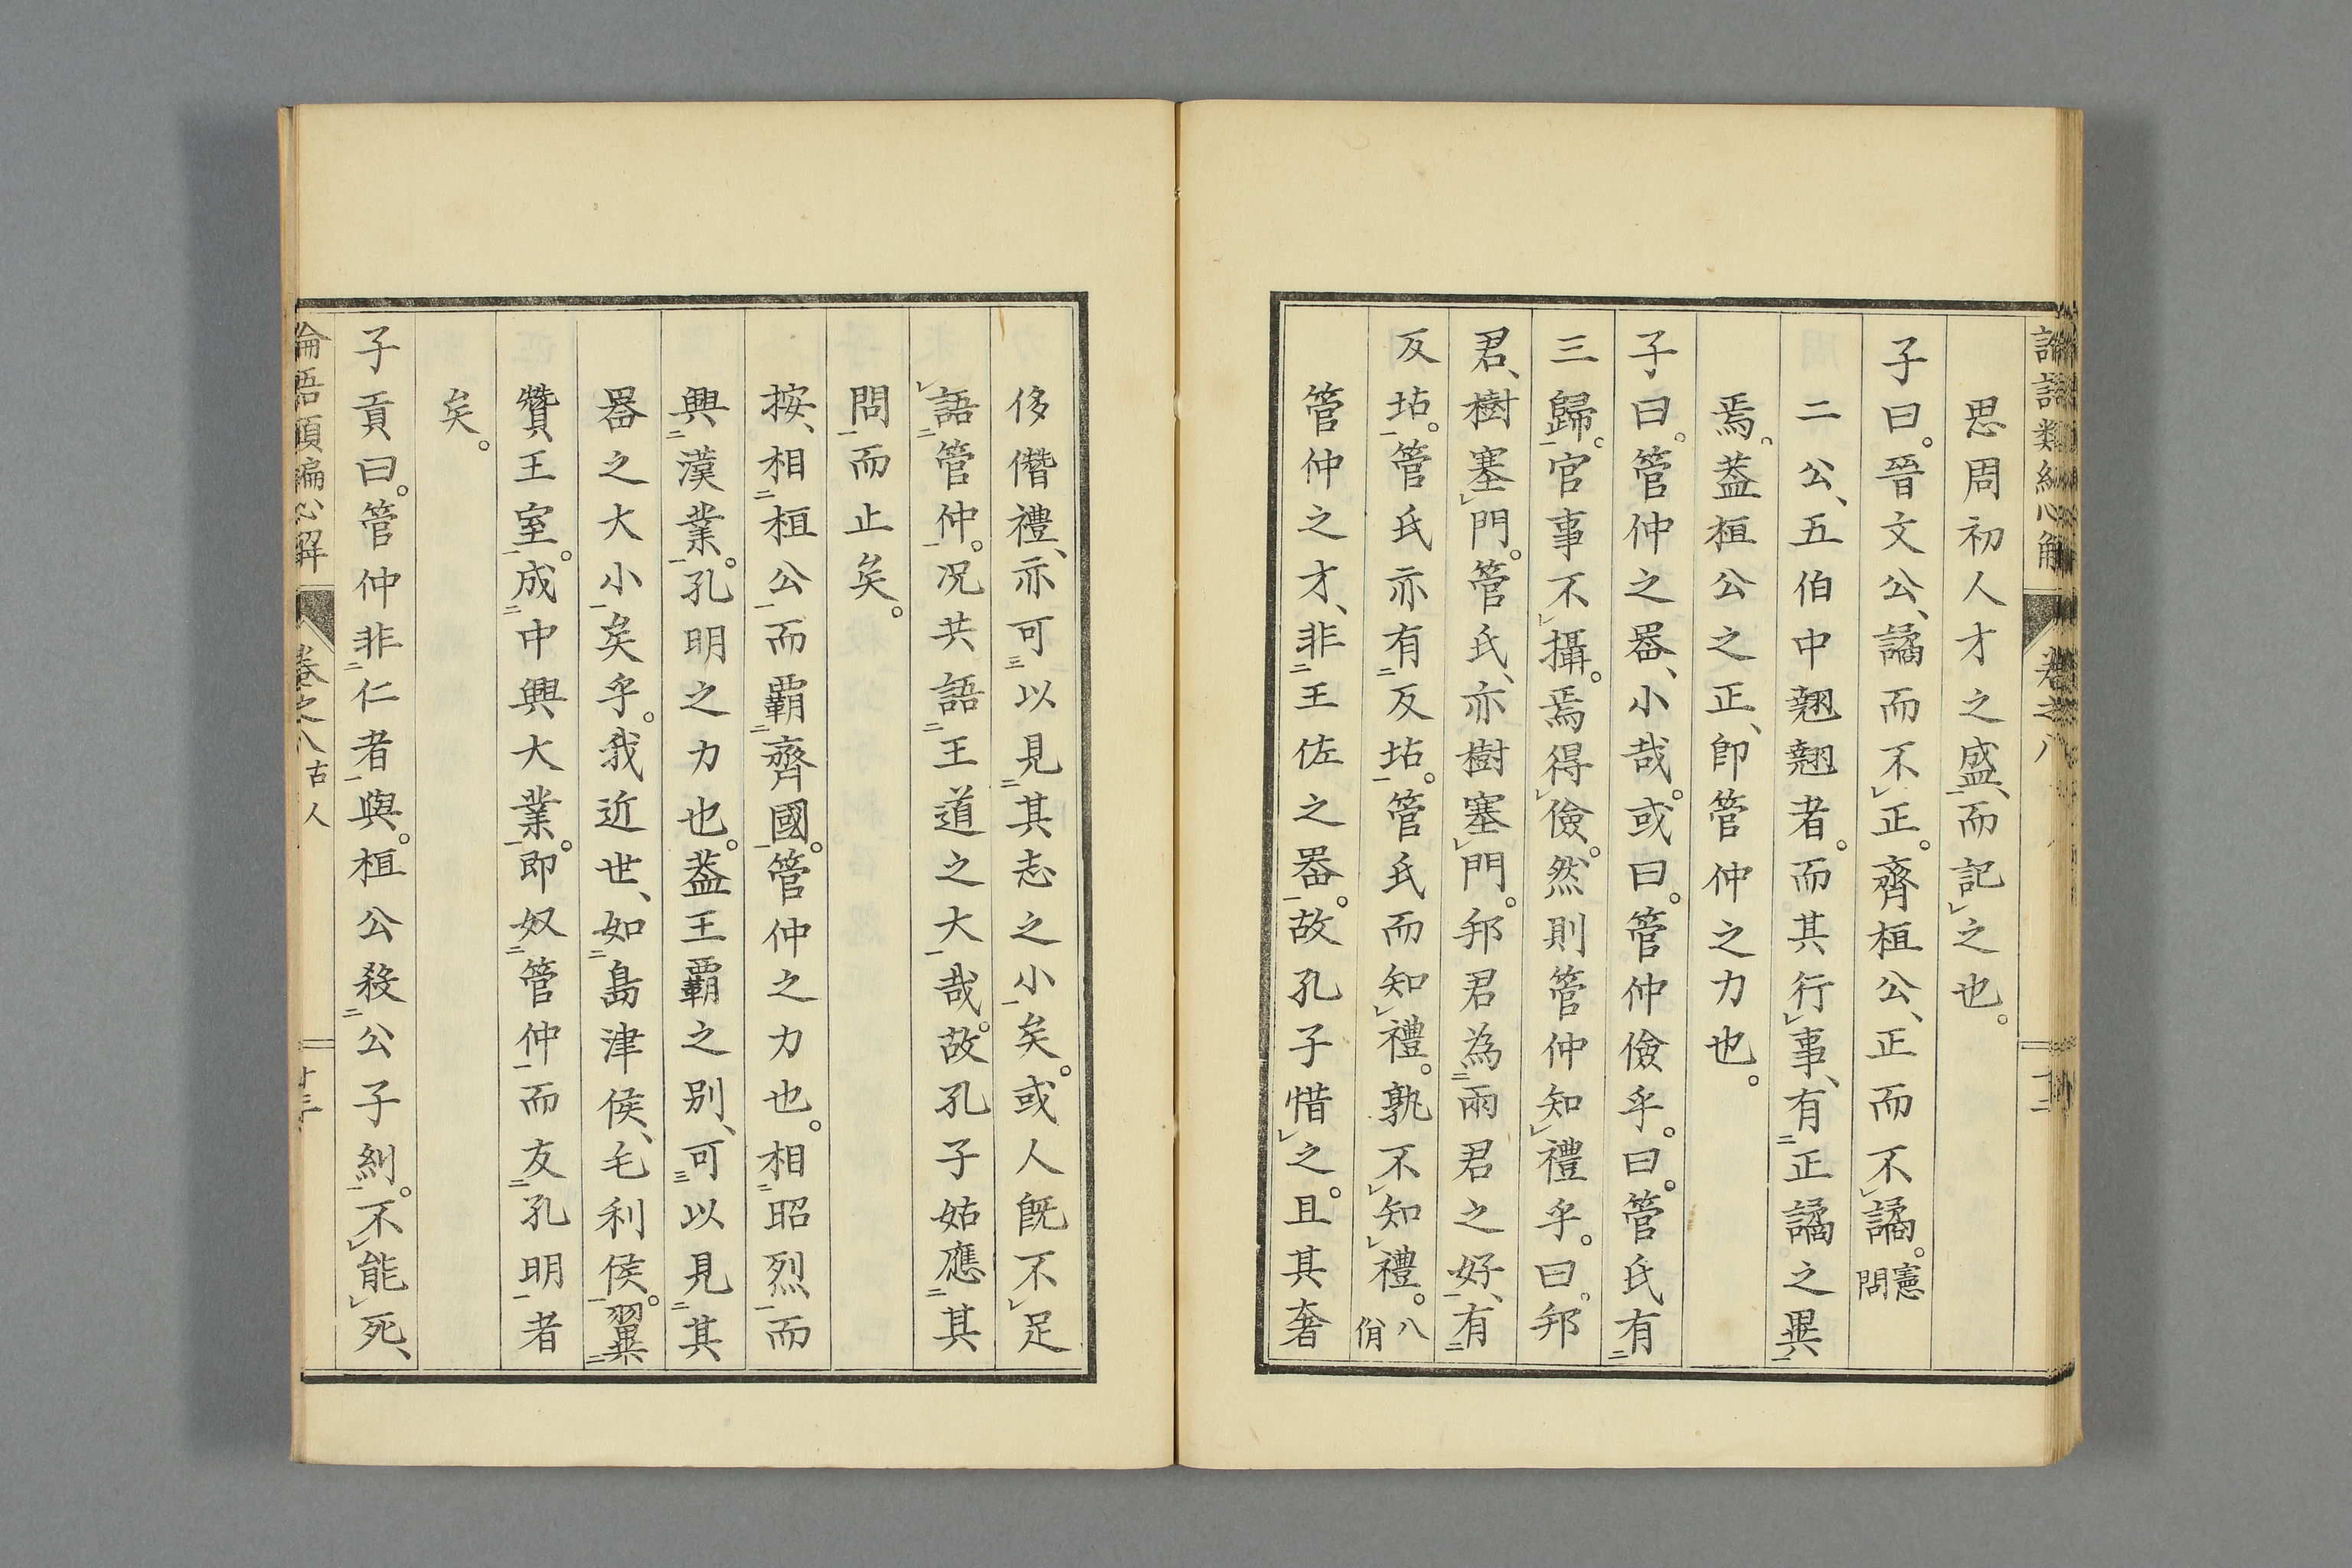 思周初人才之盛、而記之也。
子曰。晉文公、譎而不正。齊桓公、正而不譎。憲問
二公、五伯中翹翹者。而其行事、有正譎之異
焉。蓋桓公之正、卽管仲之力也。
子曰。管仲之器、小哉。或曰。管仲儉乎。曰。管氏有
三歸。官事不攝。焉得儉。然則管仲知禮乎。曰。邦
君、樹塞門。管氏、亦樹塞門。邦君為兩君之好、有
反坫。管氏亦有反坫。管氏而知禮。孰不知禮。八佾
管仲之才、非王佐之器。故孔子惜之。且其奢
侈僭禮、亦可以見其志之小矣。或人旣不足
語管仲。况共語王道之大哉。故孔子姑應其
問而止矣。
按、相桓公而覇齊國。管仲之力也。相昭烈而
興漢業。孔明之力也。蓋王覇之別、可以見其
器之大小矣乎。我近世、如島津侯、毛利侯。翼
贊王室。成中興大業。即奴管仲而友孔明者
矣。
子貢曰。管仲非仁者與。桓公殺公子糾。不能死、
論語類編心解 卷之八 古人 十三